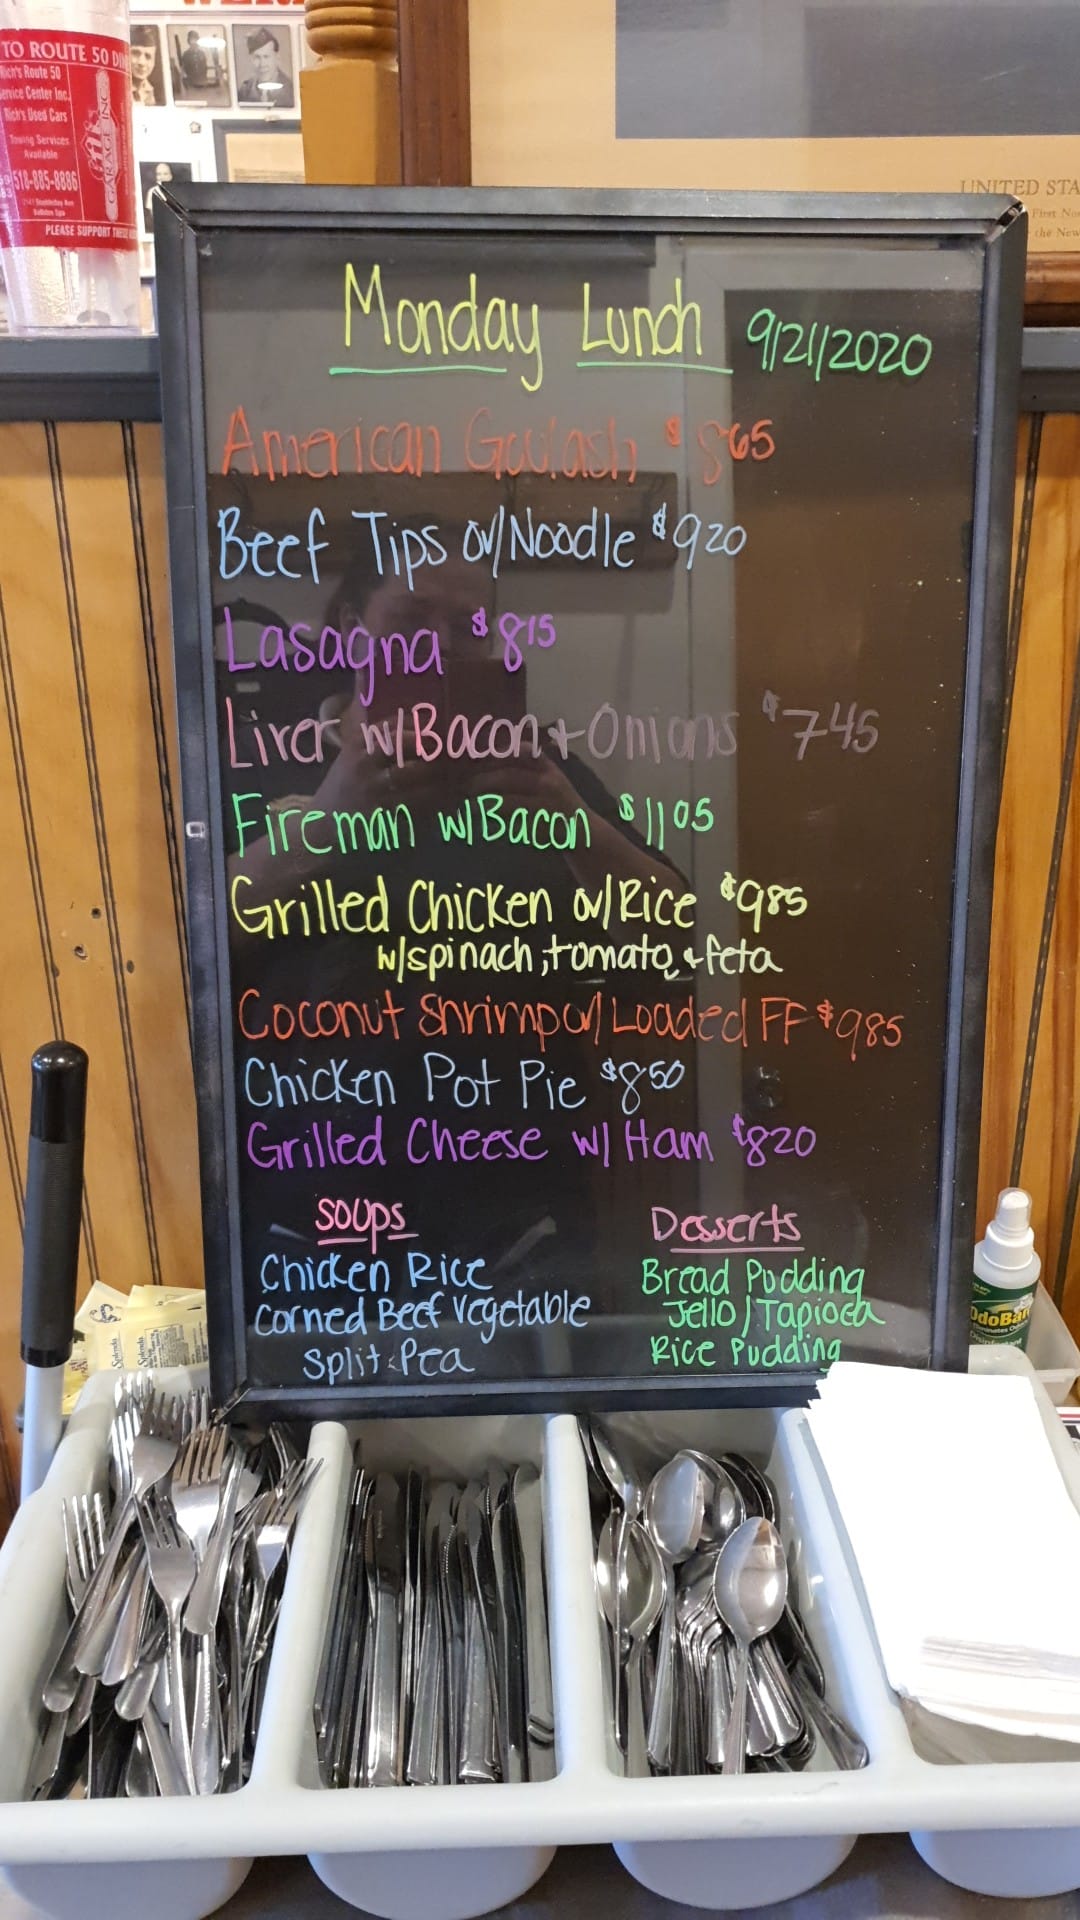 TO ROUTE 50 DIN
Rich's Route 50
Service Center Inc.
Rich's Used Cars
Towing Services
Available
518-885-8886
Ballston Spa
GARAGE INC
PLEASE SUPPORT THESE
UNITED STA
First No
the New
Monday Lunch 9/21/2020
American Goulash $865
Beef Tips ov/Noodle $920
Lasagna $815
Liver w/Bacon + Onions $745
Fireman w/Bacon $1105
Grilled Chicken ov/Rice $985
w/spinach, tomato, + feta
Coconut Shrimp w/ Loaded FF $985
Chicken Pot Pie $850
Grilled Cheese w/ Ham $820
Soups
Chicken Rice
Corned Beef Vegetable
Split Pea
Desserts
Bread Pudding
Jello / Tapioca
Rice Pudding
Splenda
Splenda
OdoBan